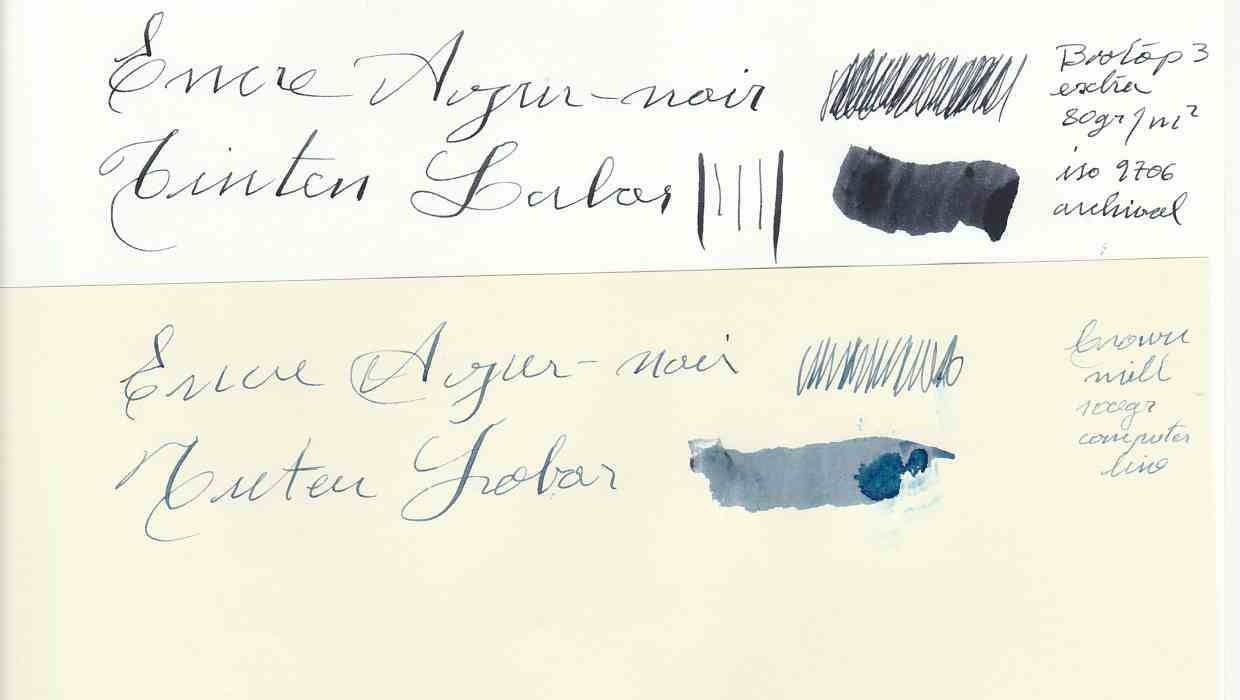 Encre Azur-noir
Tinten Labor
Biotop 3
extra
80gr/m²
iso 9706
archival
Encre Azur-noir
Tinten Labor
crown
mill
100gr
computer
line